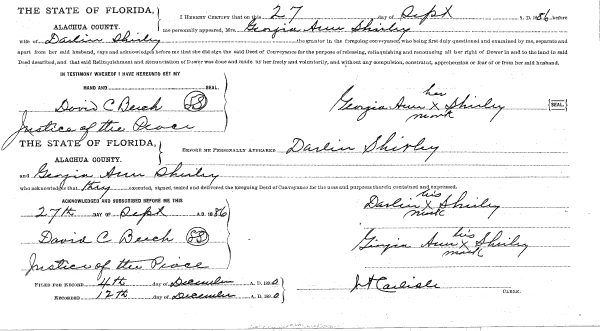 THE STATE OF FLORIDA,
ALACHUA COUNTY.
I HEREBY CERTIFY that on this 27 day of Sept A. D. 1886 before
me personally appeared, Mrs. Georgia Ann Shirley
wife of Darlin Shirley the grantor in the foregoing conveyance, who being first duly questioned and examined by me, separate and
apart from her said husband, says and acknowledges before me that she did sign the said Deed of Conveyance for the purpose of releasing, relinquishing and renouncing all her right of Dower in and to the land in said
Deed described, and that said Relinquishment and Renunciation of Dower was done and made by her freely and voluntarily, and without any compulsion, constraint, apprehension or fear of or from her said husband.
IN TESTIMONY WHEREOF I HAVE HEREUNTO SET MY
HAND AND SEAL.
David C Beech
Justice of the Peace
her
Georgia Ann X Shirley
mark
SEAL.
THE STATE OF FLORIDA,
ALACHUA COUNTY.
BEFORE ME PERSONALLY APPEARED Darlin Shirley
and Georgia Ann Shirley
who acknowledge that they executed, signed, sealed and delivered the foregoing Deed of Conveyance for the uses and purposes therein contained and expressed.
ACKNOWLEDGED AND SUBSCRIBED BEFORE ME THIS
27th DAY OF Sept A.D. 1886
David C. Beech
Justice of the Peace
his
Darlin X Shirley
mark
his
Georgia Ann X Shirley
mark
FILED FOR RECORD 4th day of December A. D. 1880
RECORDED 12th day of December A. D. 1880
Carlisle
CLERK.